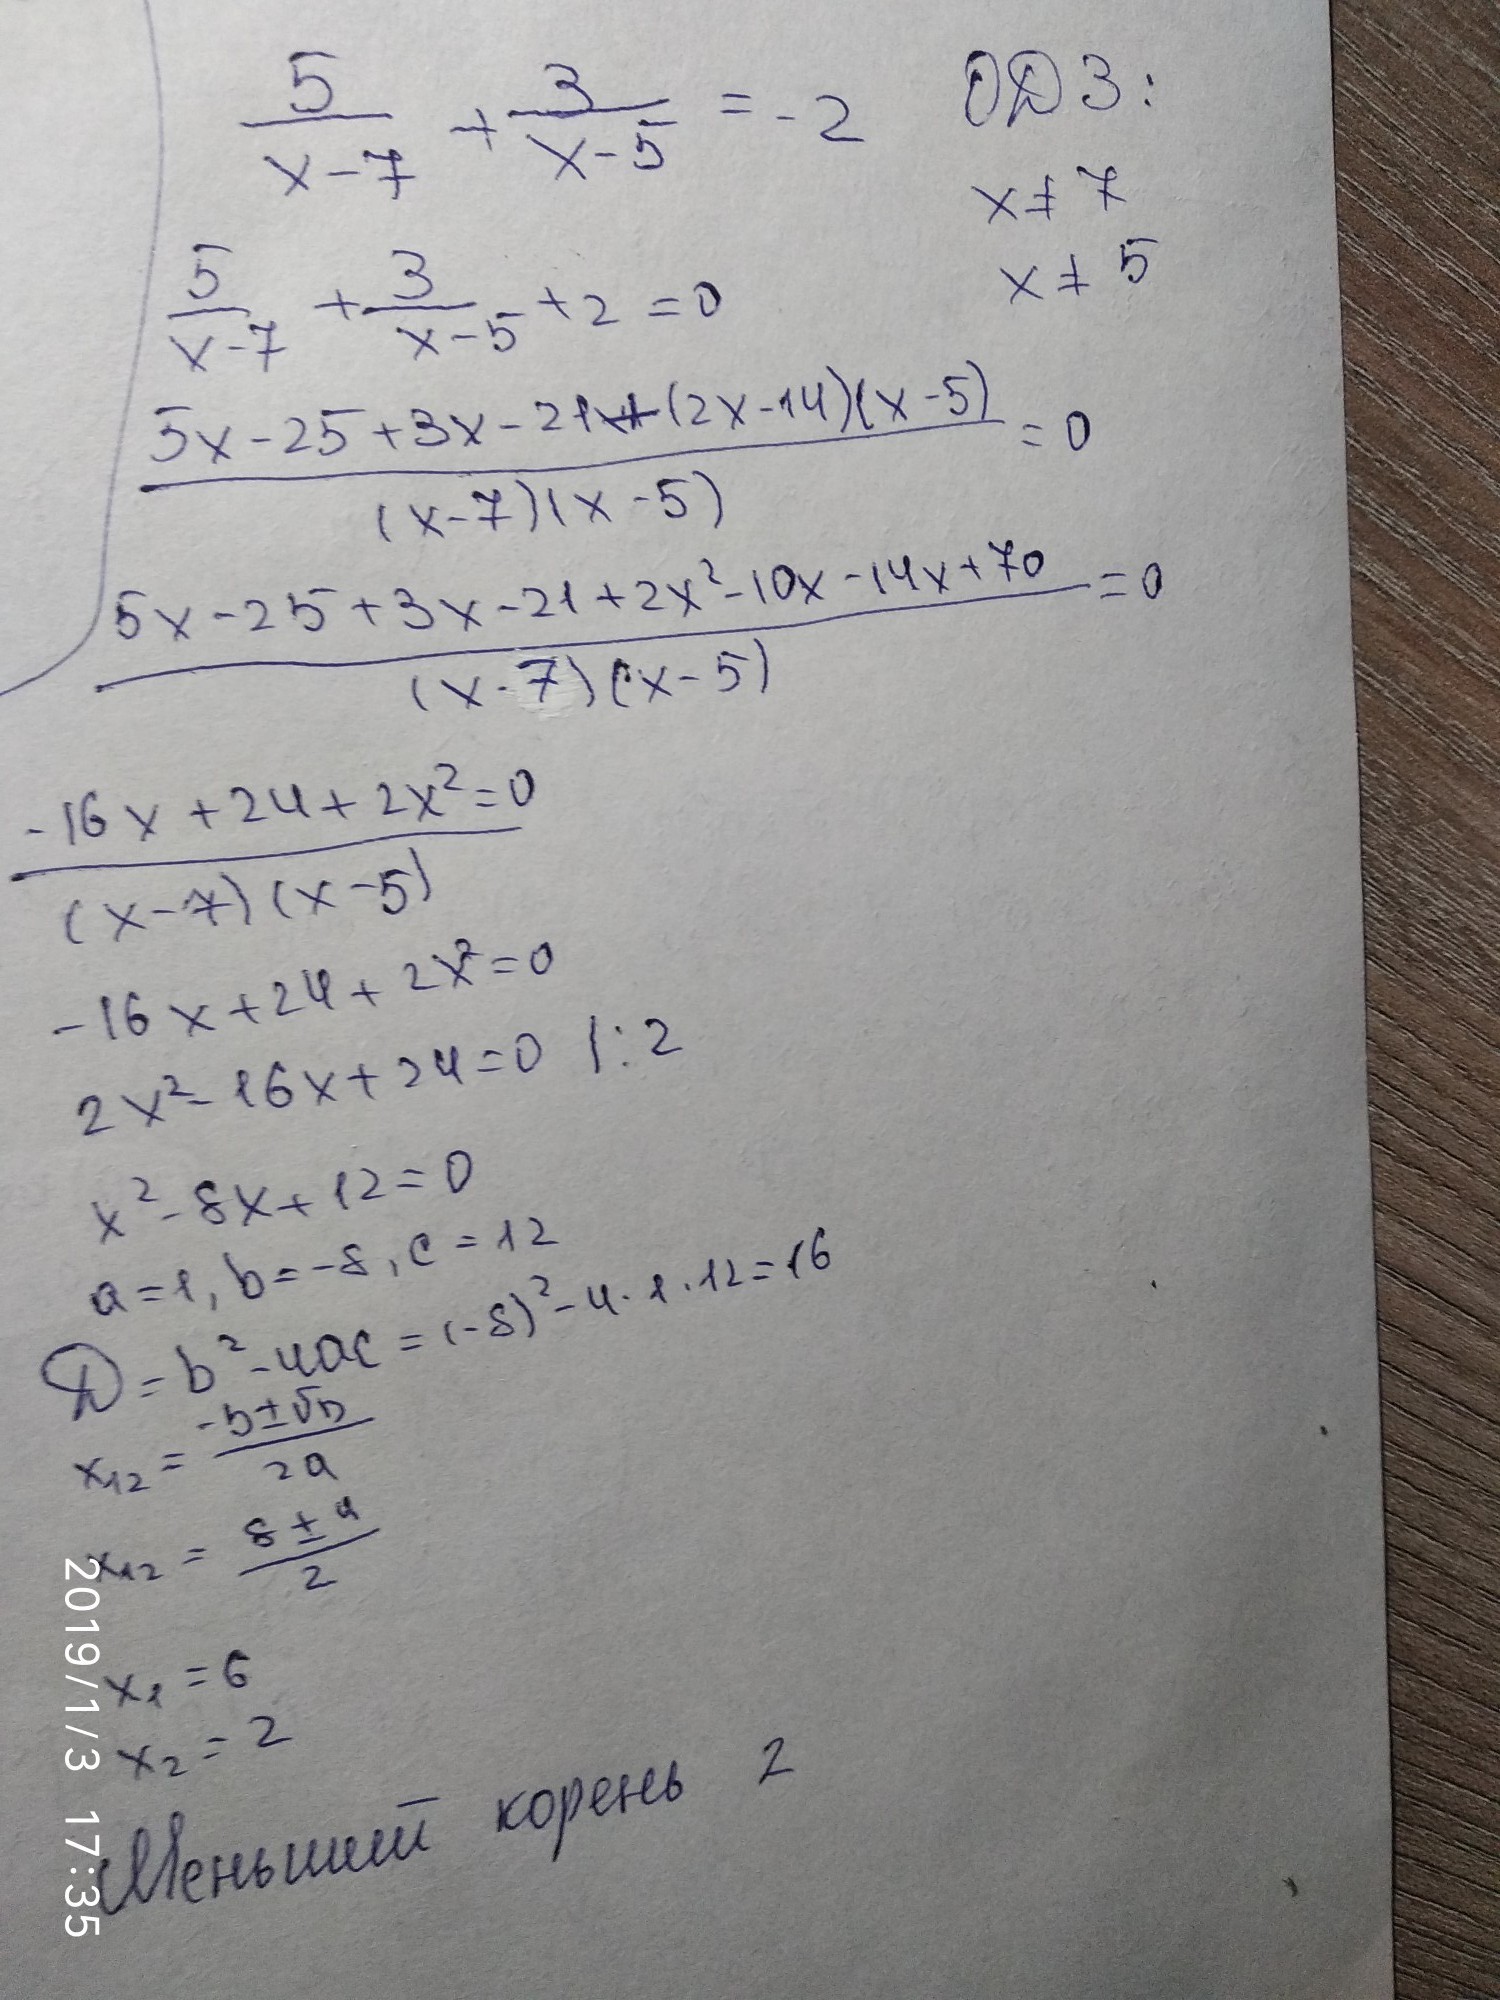 5/(x-7) + 3/(x-5) = -2
ОДЗ:
x≠7
x≠5
5/(x-7) + 3/(x-5) + 2 = 0
(5x-25+3x-21+(2x-14)(x-5))/((x-7)(x-5)) = 0
(5x-25+3x-21+2x²-10x-14x+70)/((x-7)(x-5)) = 0
(-16x+24+2x²=0)/((x-7)(x-5))
-16x+24+2x²=0
2x²-16x+24=0 |:2
x²-8x+12=0
a=1, b=-8, c=12
Д=b²-4ac=(-8)²-4·1·12=16
x₁₂=(-b±√D)/2a
x₁₂=(8±4)/2
x₁=6
x₂=2
Меньший корень 2
2019/1/3 17:35